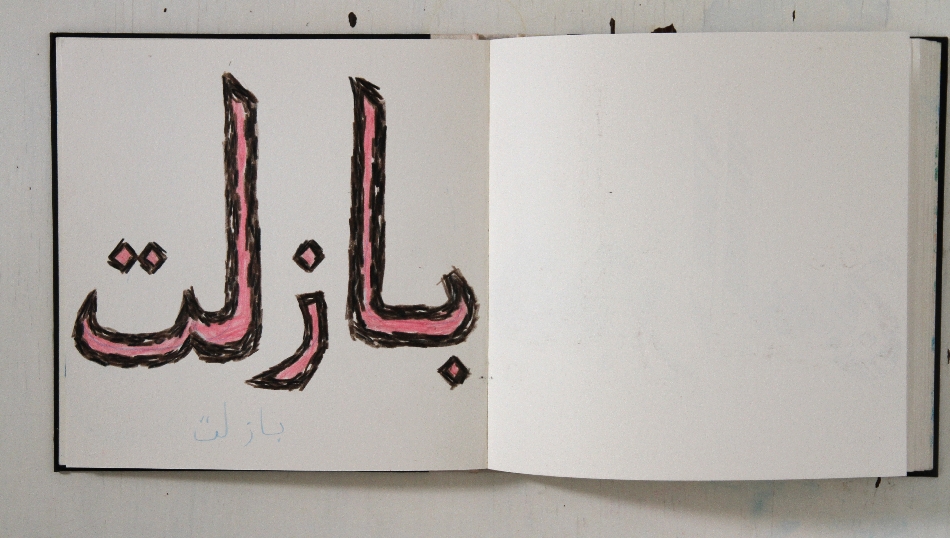 بازلت
بازلت